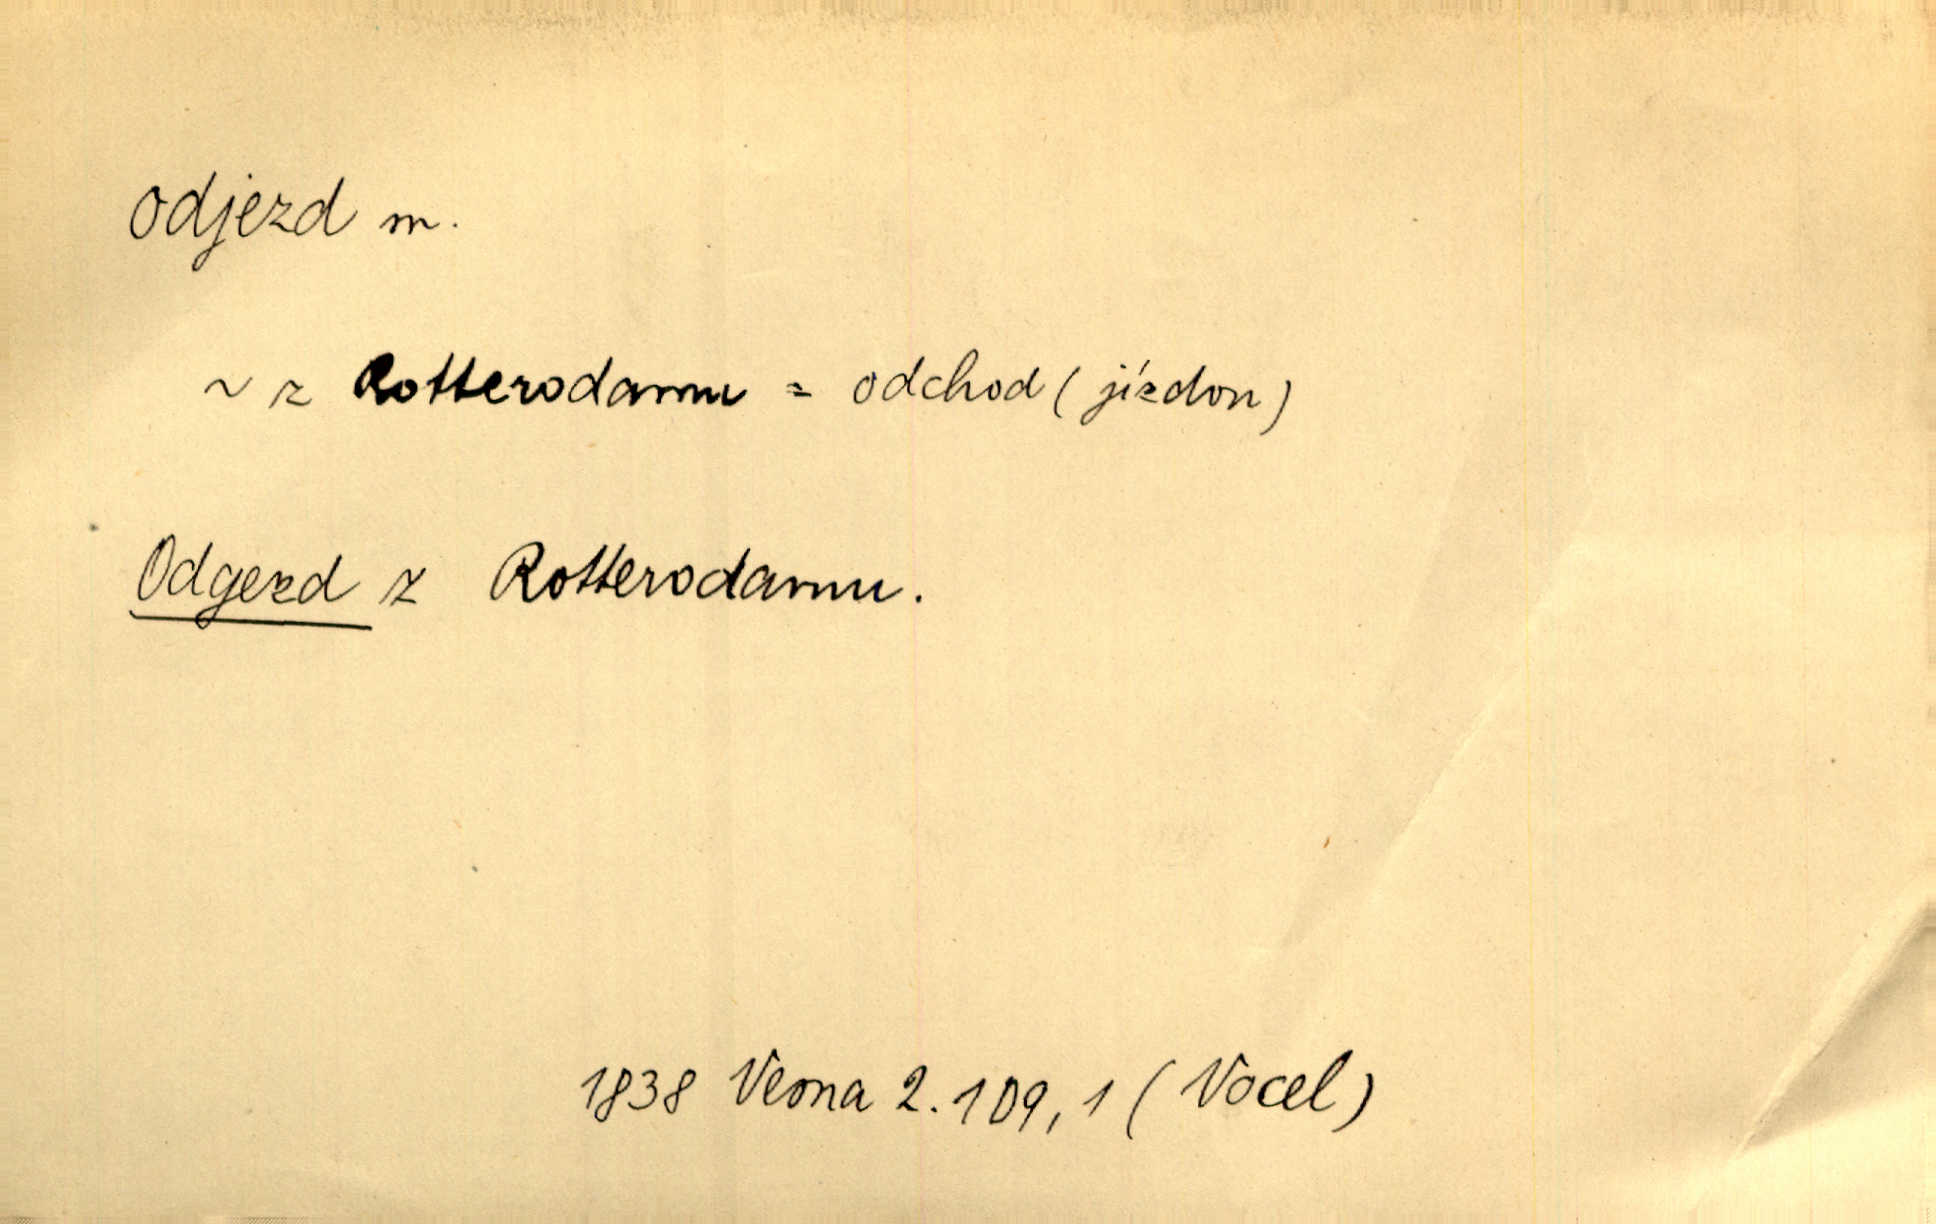 odjezd m.
~ z Rotterodamu = odchod (jízdou)
Odgezd z Rotterodamu.
1838 Vesna 2.109,1 (Vocel)